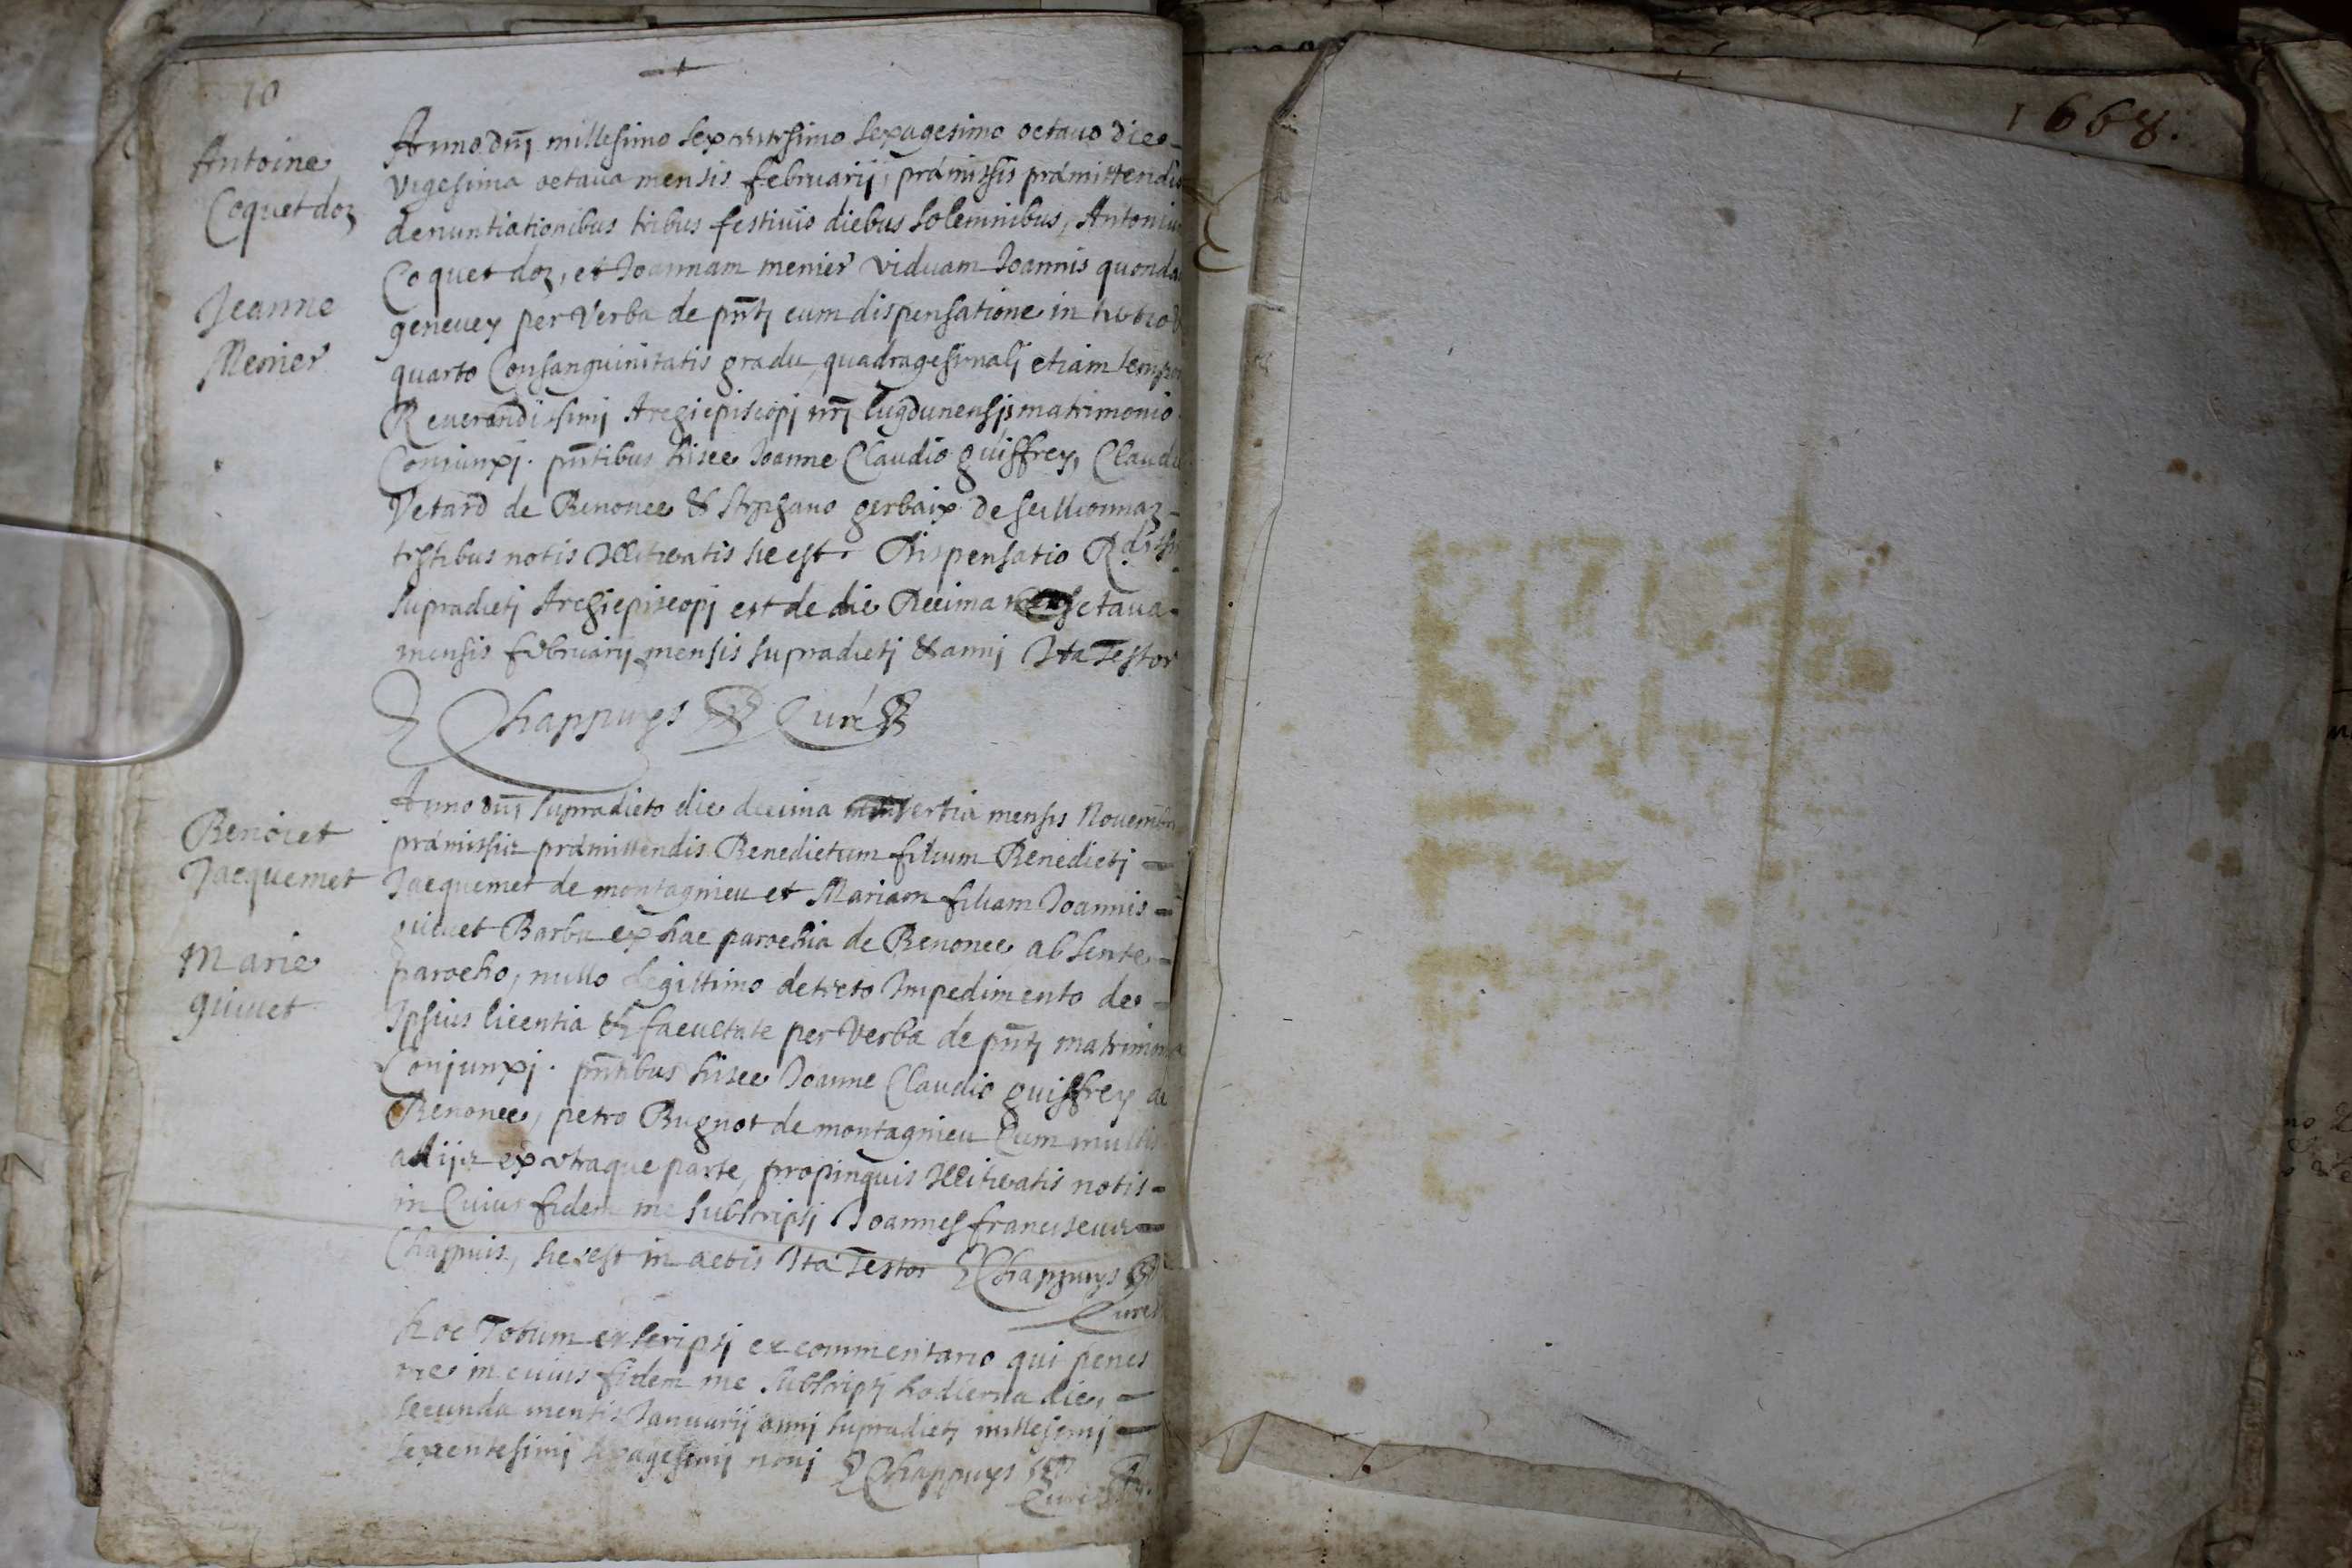 10
Antoine
Coquet doz
Jeanne
Menier
Anno dnj millesimo sexcentesimo sexagesimo octavo die
vigesima octava mensis februarij, prámissis prámittendis
denuntiationibus tribus festivis diebus solemnibus, Antonium
Coquet doz, et Joannam menier viduam Joannis quondam
genevey per verba de pntj cum dispensatione in
quarto Consanguinitatis gradu, quadragesimalj etiam tempore
Reverendissimj Archiepiscopj nrj lugdunensis matrimonio
Coniunxj. pntibus hisce Joanne Claudio guiffrey, Claudio
Vetard de Benonce & Stephano gerbaix de seillionnaz
testibus notis Illiteratis sic est. Dispensatio R.
supradictj Archiepiscopj est de die Decima octava
mensis februarij mensis supradictj & annj Ita Testor
Chappuys Curé
Benoict
Jacquemet
Marie
guivet
Anno dnj supradicto die decima tertia mensis Novembris
prámissis prámittendis Benedictum filium Benedictj
Jacquemet de montagnieu et Mariam filiam Joannis
guivet Barbu ex hac parochia de Benonce absente
parocho, nullo legittimo detecto Impedimento de
Ipsius licentia & facultate per verba de pntj matrimonio
Conjunxj. pntibus hisce Joanne Claudio guiffrey de
Benonce, petro Bugnot de montagnieu Cum multis
alijs ex vtraque parte, propinquis Illiteratis notis
in Cuius fidem me subscripsj Joannes franciscus
Chappuis, sic est in actis Ita Testor Chappuys
Curé
hoc Totum exscripsj ex commentario qui penes
me in cuius fidem me subscripsj hodierna die,
secunda mensis Januarij annj supradictj millesimj
sexcentesimj sexagesimj nonj Chappuys
Curé
1668.